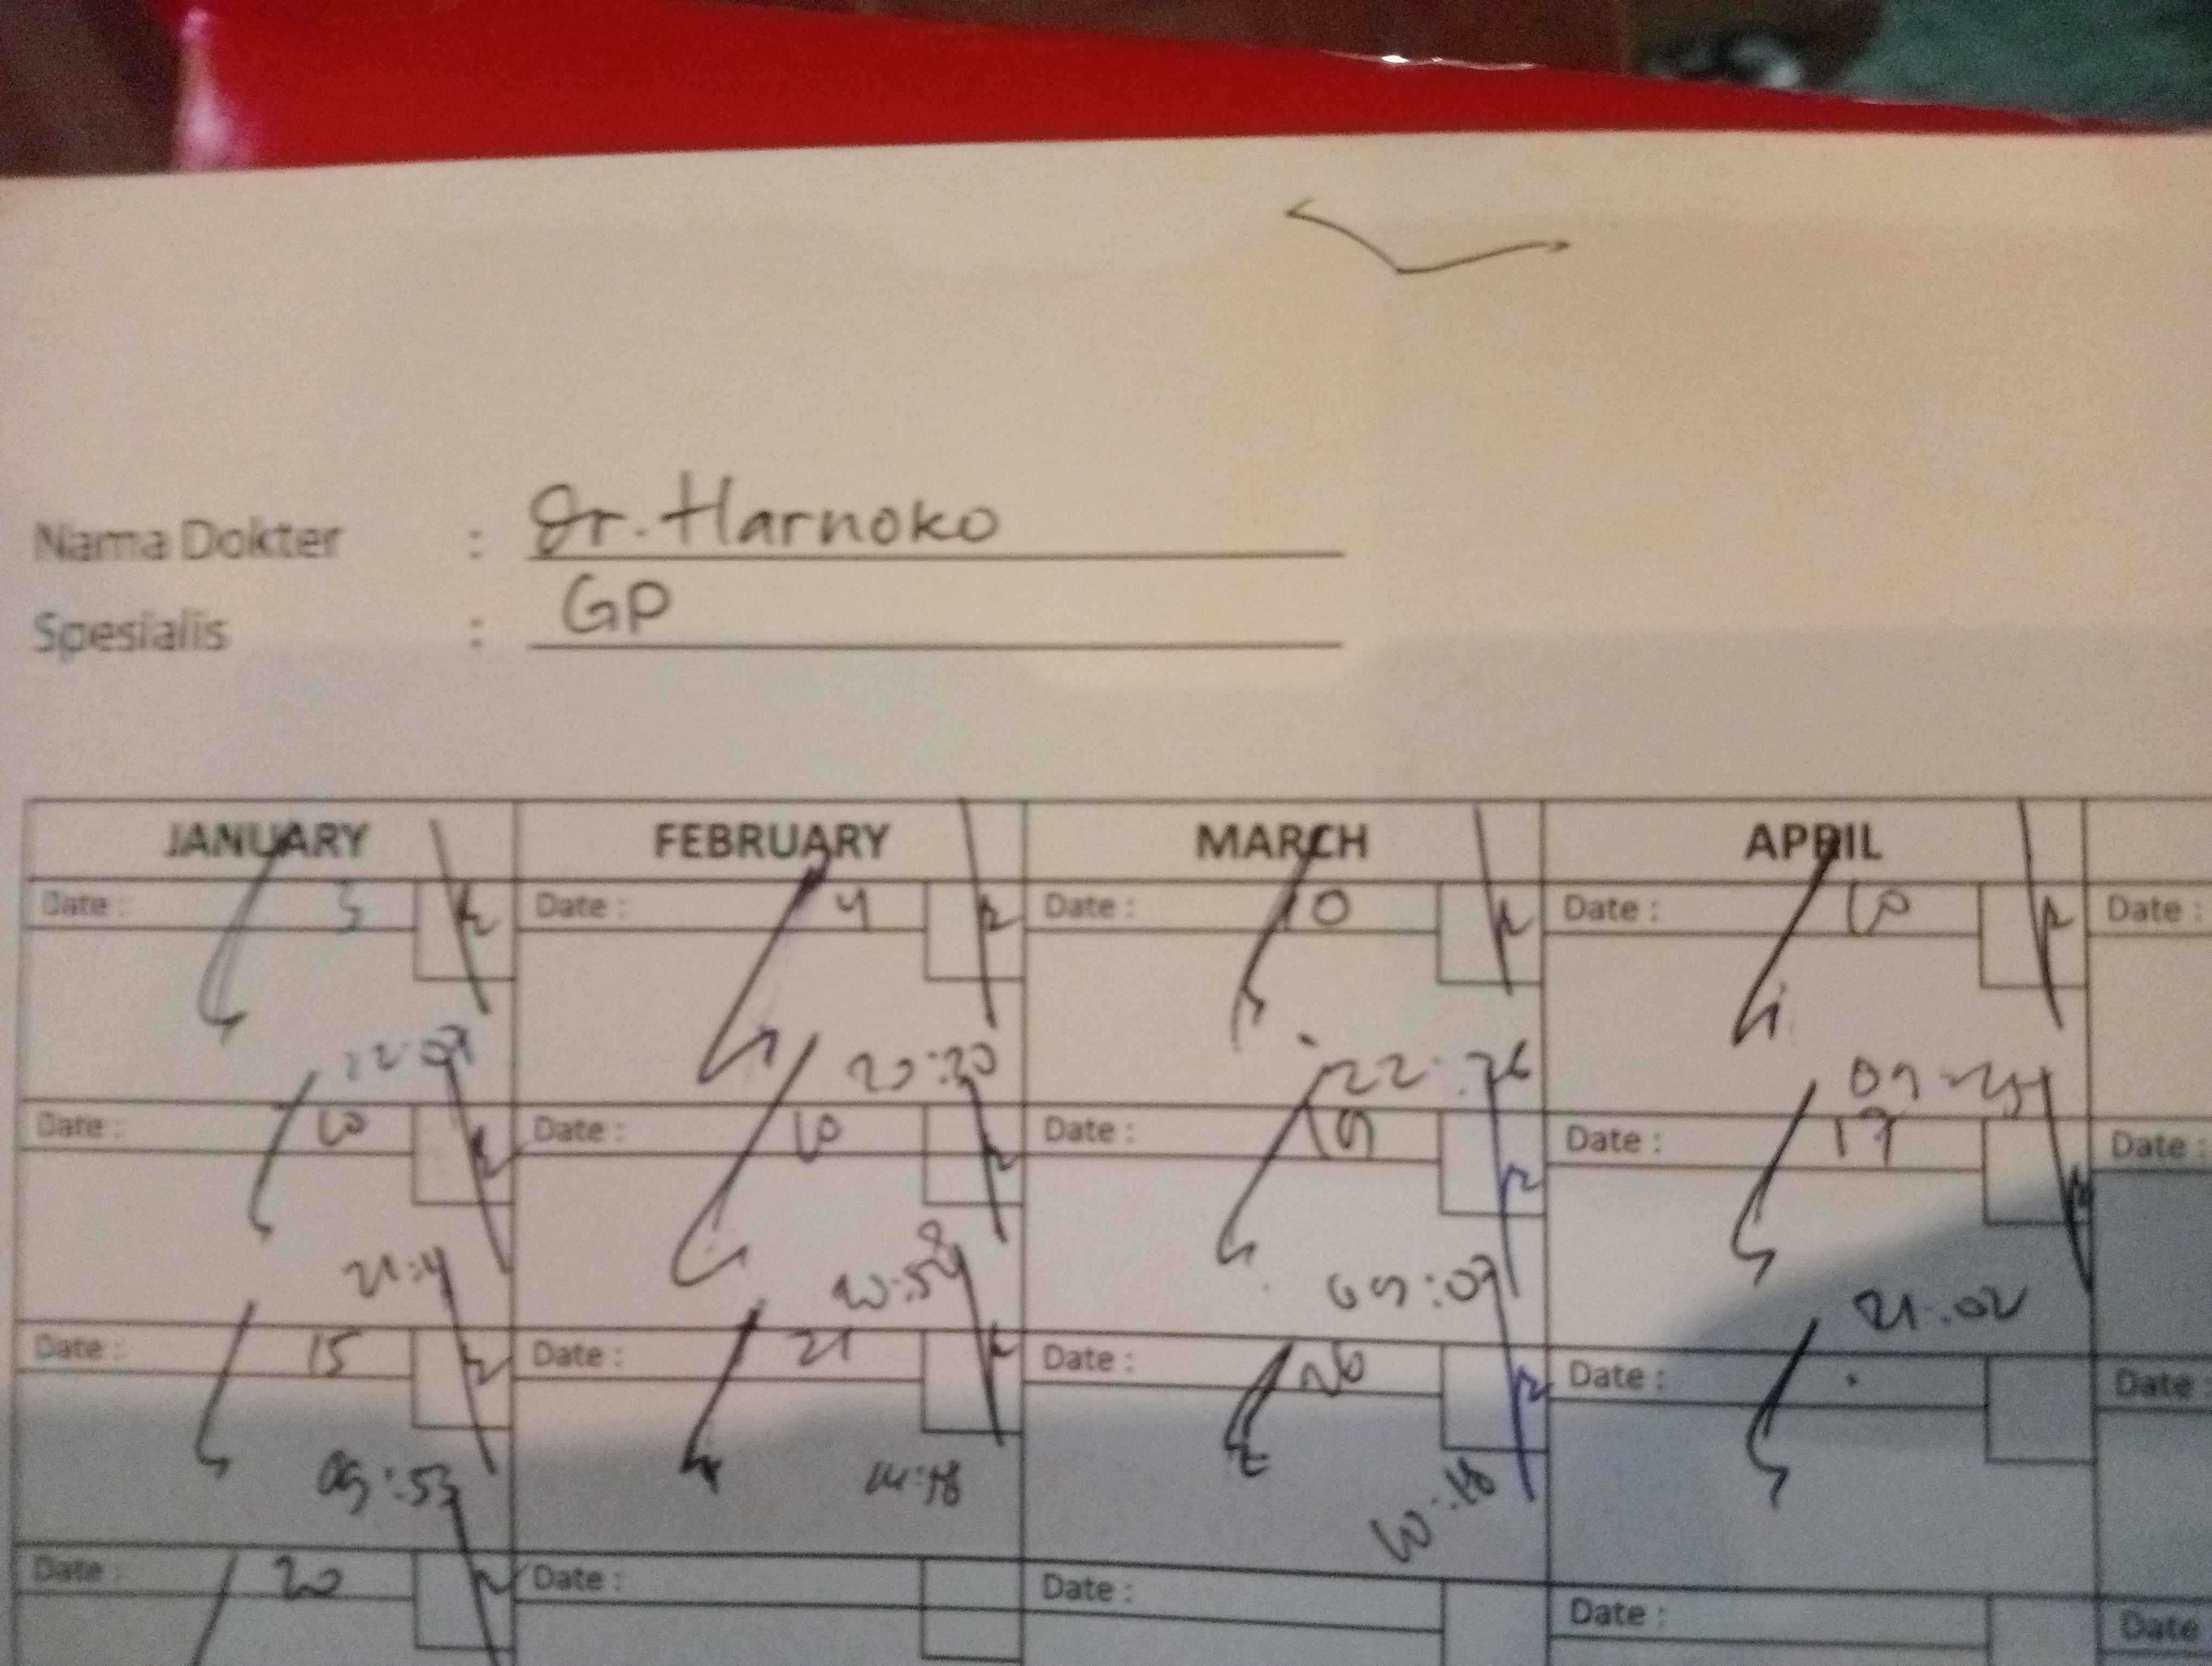 Nama Dokter : Dr. Harnoko
Spesialis : GP
JANUARY FEBRUARY MARCH APRIL
Date : 3 Date : 4 Date : 10 Date : 10 Date :
22:07 20:30 22:36
Date : 10 Date : 10 Date : 19 Date : 17 Date :
20:58 09:07 21:02
Date : 15 Date : 21 Date : 26 Date : Date :
09:53 10:18
Date : 20 Date : Date : Date : Date